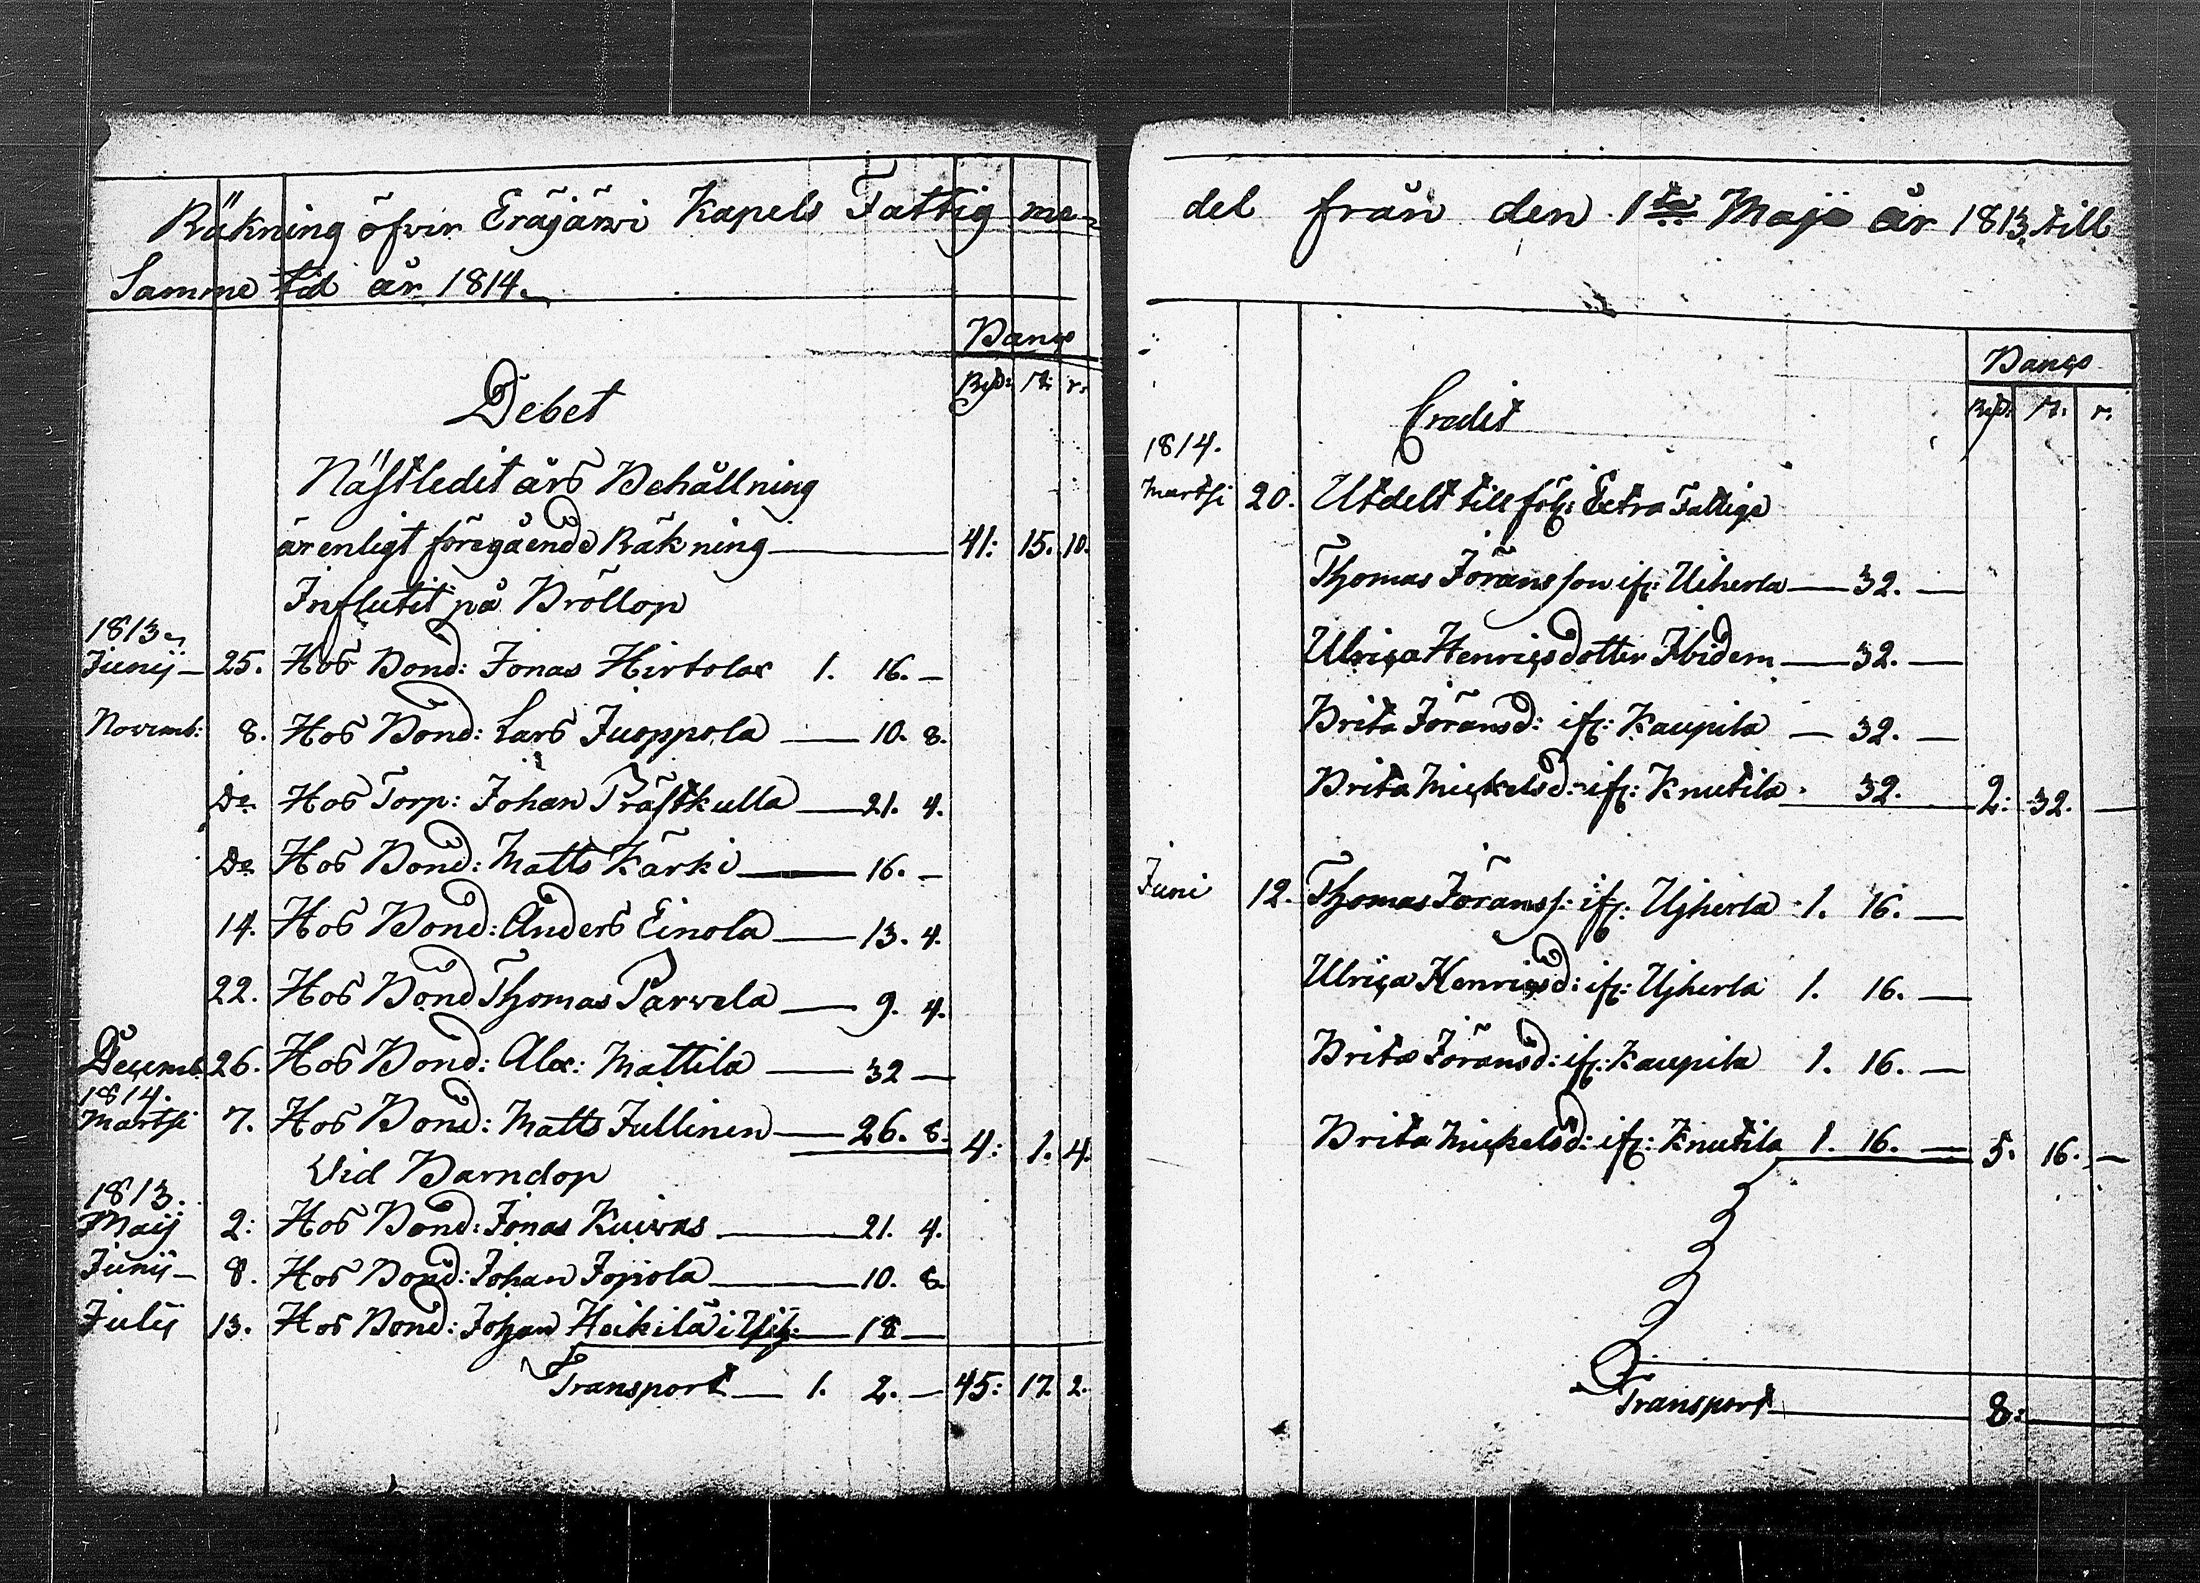 Räkning öfver Eräjärvi Kapels Fattig me-
Samme tid år 1814.
Banco
Rd: s: r:
Debet
Nästledit års Behållning
är enligt föregående Räkning 41: 15. 10.
Influtit på Bröllop
1813
Junij 25. Hos Bond: Jonas Hirtolae 1. 16. —
Novemb: 8. Hos Bond: Lars Juoppola — 10. 8.
Do Hos Torp: Johan Prästkulla — 21. 4.
Do Hos Bond: Matts Kärki — 16. —
14. Hos Bond: Anders Einola — 13. 4.
22. Hos Bond Thomas Parvela — 9. 4.
Decemb: 26. Hos Bond: Alex: Mattila — 32 —
1814.
Martii 7. Hos Bond: Matts Jullinen — 26. 8. 4: 1. 4.
Vid Barndop
1813.
Maij 2: Hos Bond: Jonas Kuivas — 21. 4.
Junij — 8. Hos Bond: Johan Jopola — 10. 8.
Julij 13. Hos Bond: Johan Heikilä i — 18 —
Transport — 1. 2. — 45: 17 2.
del från den 1sta Maji år 1813, till
Banco
Rd: s: r:
Credit
1814.
Martii 20. Utdelt till följ: Extra Fattige
Thomas Jöransson ifr: Uiherla — 32. —
Ulrica Henricsdotter Ibidem — 32. —
Brita Jöransd: ifr: Kaupila — 32. —
Brita Mickelsd: ifr: Knutila 32. 2: 32. —
Juni 12. Thomas Jöranss: ifr: Ujherla 1. 16. —
Ulrica Henricsd: ifr: Ujherla 1. 16. —
Brita Jöransd: ifr: Kaupila 1. 16. —
Brita Mickelsd: ifr: Knutila 1. 16. — 5. 16. —
Transport 8: